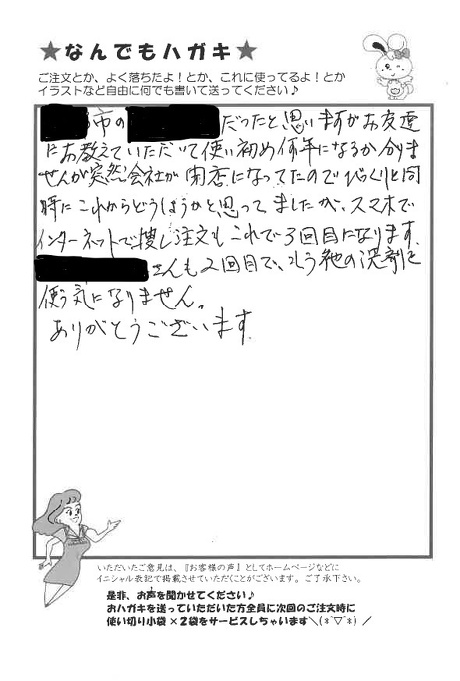 ★なんでもハガキ★
ご注文とか、よく落ちたよ！とか、これに使ってるよ！とか
イラストなど自由に何でも書いて送ってください♪
市の だったと思いますがお友達
にお教えていただいて使い初め何年になるか分りま
せんが突然会社が閉店になってたのでびっくりと同
時にこれからどうしようかと思ってましたが、スマホで
インターネットで捜し注文もこれで3回目になります。
さんも2回目で、もう他の洗剤を
使う気になりません。
ありがとうございます。
いただいたご意見は、『お客様の声』としてホームページなどに
イニシャル表記で掲載させていただくことがございます。ご了承下さい。
是非、お声を聞かせてください♪
おハガキを送っていただいた方全員に次回のご注文時に
使い切り小袋×2袋をサービスしちゃいます＼(*ˆ▽ˆ*)／